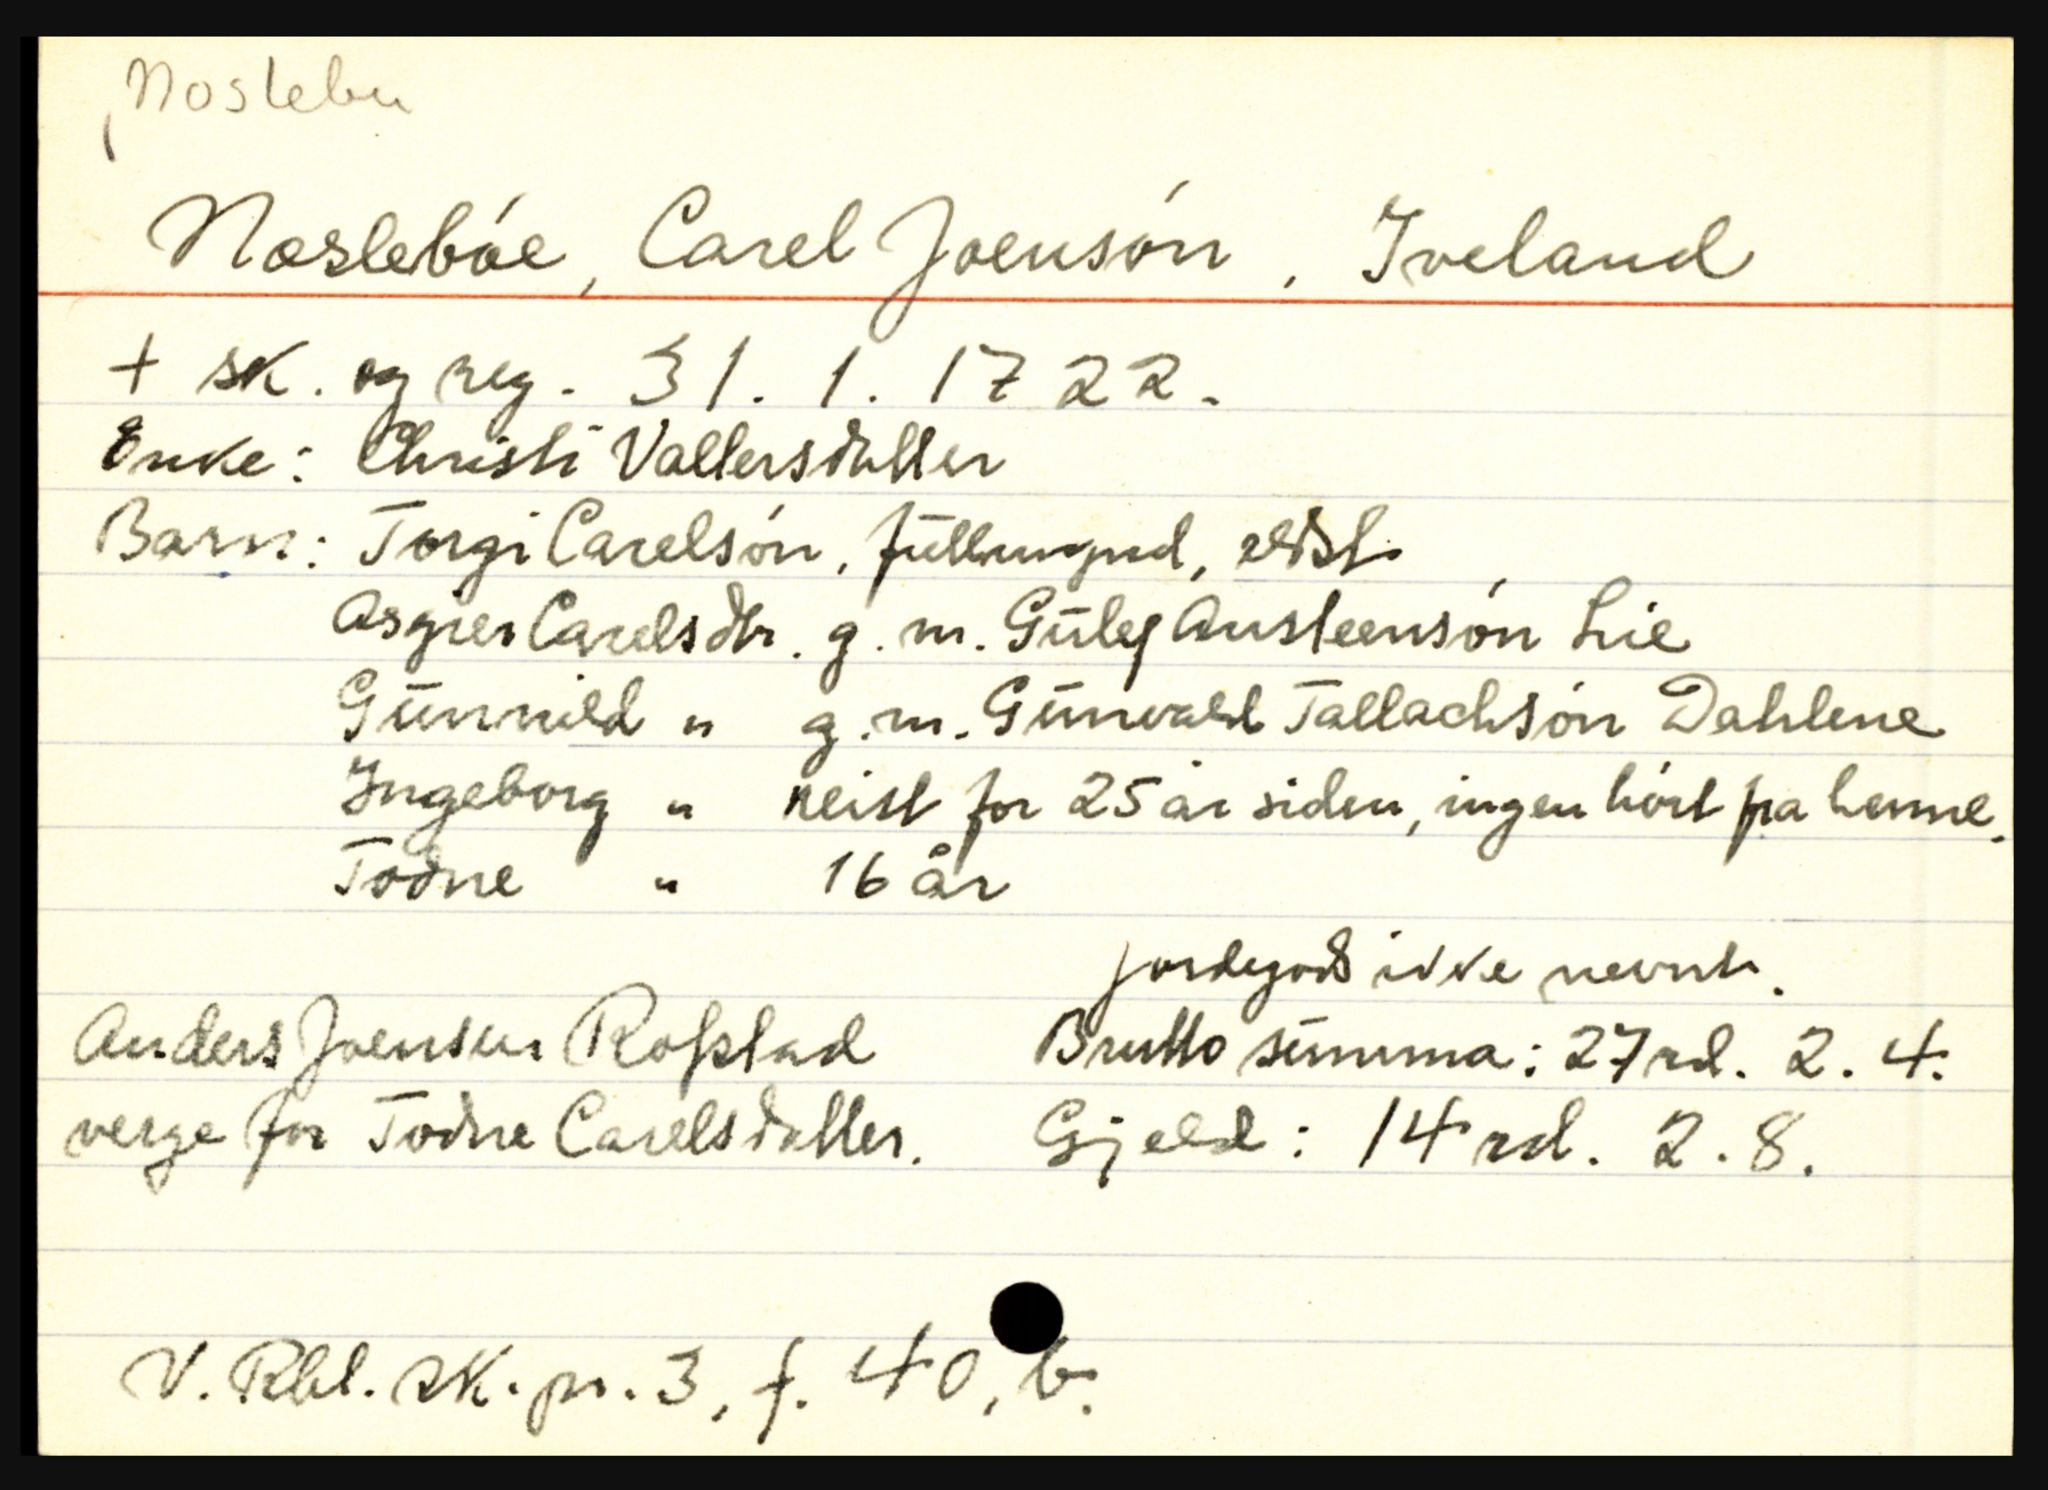 Noslebu
Noslebóe, Carel Joensón, Iveland
+ sk. og reg. 31. 1. 1722.
Enke: Christi Vallersdatter
Barn: Torgi Carelsón, fullmynd, eldst
Asgier Carelsdtr. g. m. Gūlef Austeensón Lie
Gūnnild " g. m. Gūnvald Tallachsón Dahlene
Ingeborg " reist for 25 år siden, ingen hórt fra henne.
Todne " 16 år
jordegods ikke nevnt.
Anders Joensen Roßstad Brutto sūmma: 27 rd. 2. 4.
verge for Todne Carelsdatter. Gjeld: 14 rd. 2. 8.
V. Rbl. sk. pr. 3, f. 40, b.